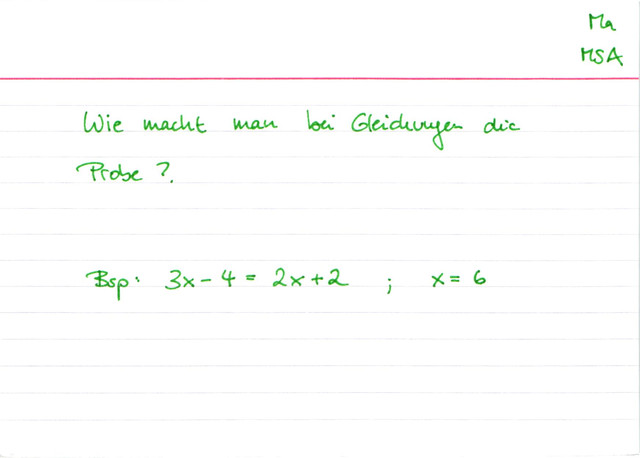 Ma
MSA
Wie macht man bei Gleichungen die
Probe?
Bsp: 3x - 4 = 2x + 2 ; x = 6